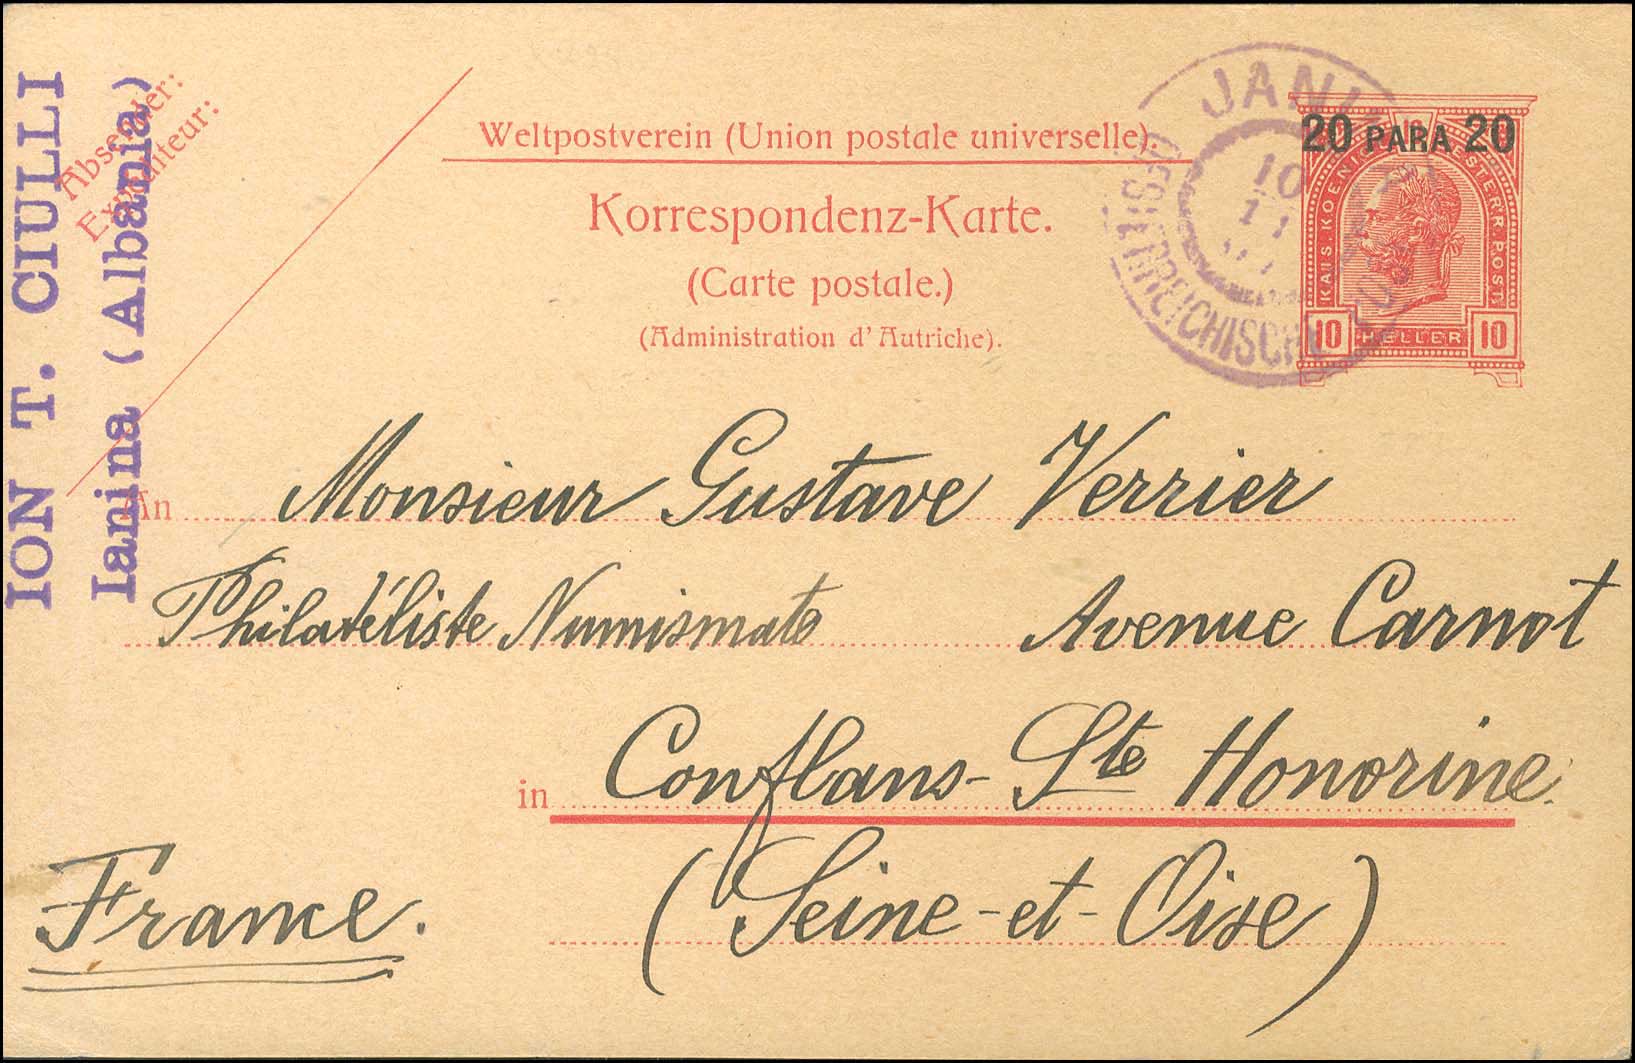 ION T. CIULLI
Ianina (Albania)
Absender:
Expéditeur:
Weltpostverein (Union postale universelle).
Korrespondenz-Karte.
(Carte postale.)
(Administration d'Autriche).
JANINA
10
11
OESTERREICHISCHE POST
20 PARA 20
KAIS. KOENIGL. OESTERR. POST
10 HELLER 10
An Monsieur Gustave Verrier
Philatéliste Numismate Avenue Carnot
in Conflans-Ste Honorine
(Seine-et-Oise)
France.